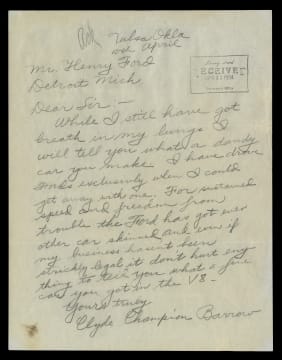 Tulsa Okla
10th April
Mr. Henry Ford
Detroit Mich.
Dear Sir: —
While I still have got
breath in my lungs I
will tell you what a dandy
car you make. I have drove
Fords exclusivly when I could
get away with one. For sustained
speed and freedom from
trouble the Ford has got ever
other car skinned and even if
my business hasen't been
strickly legal it don't hurt eny
thing to tell you what a fine
car you got in the V8 —
Yours truly
Clyde Champion Barrow
RECEIVED